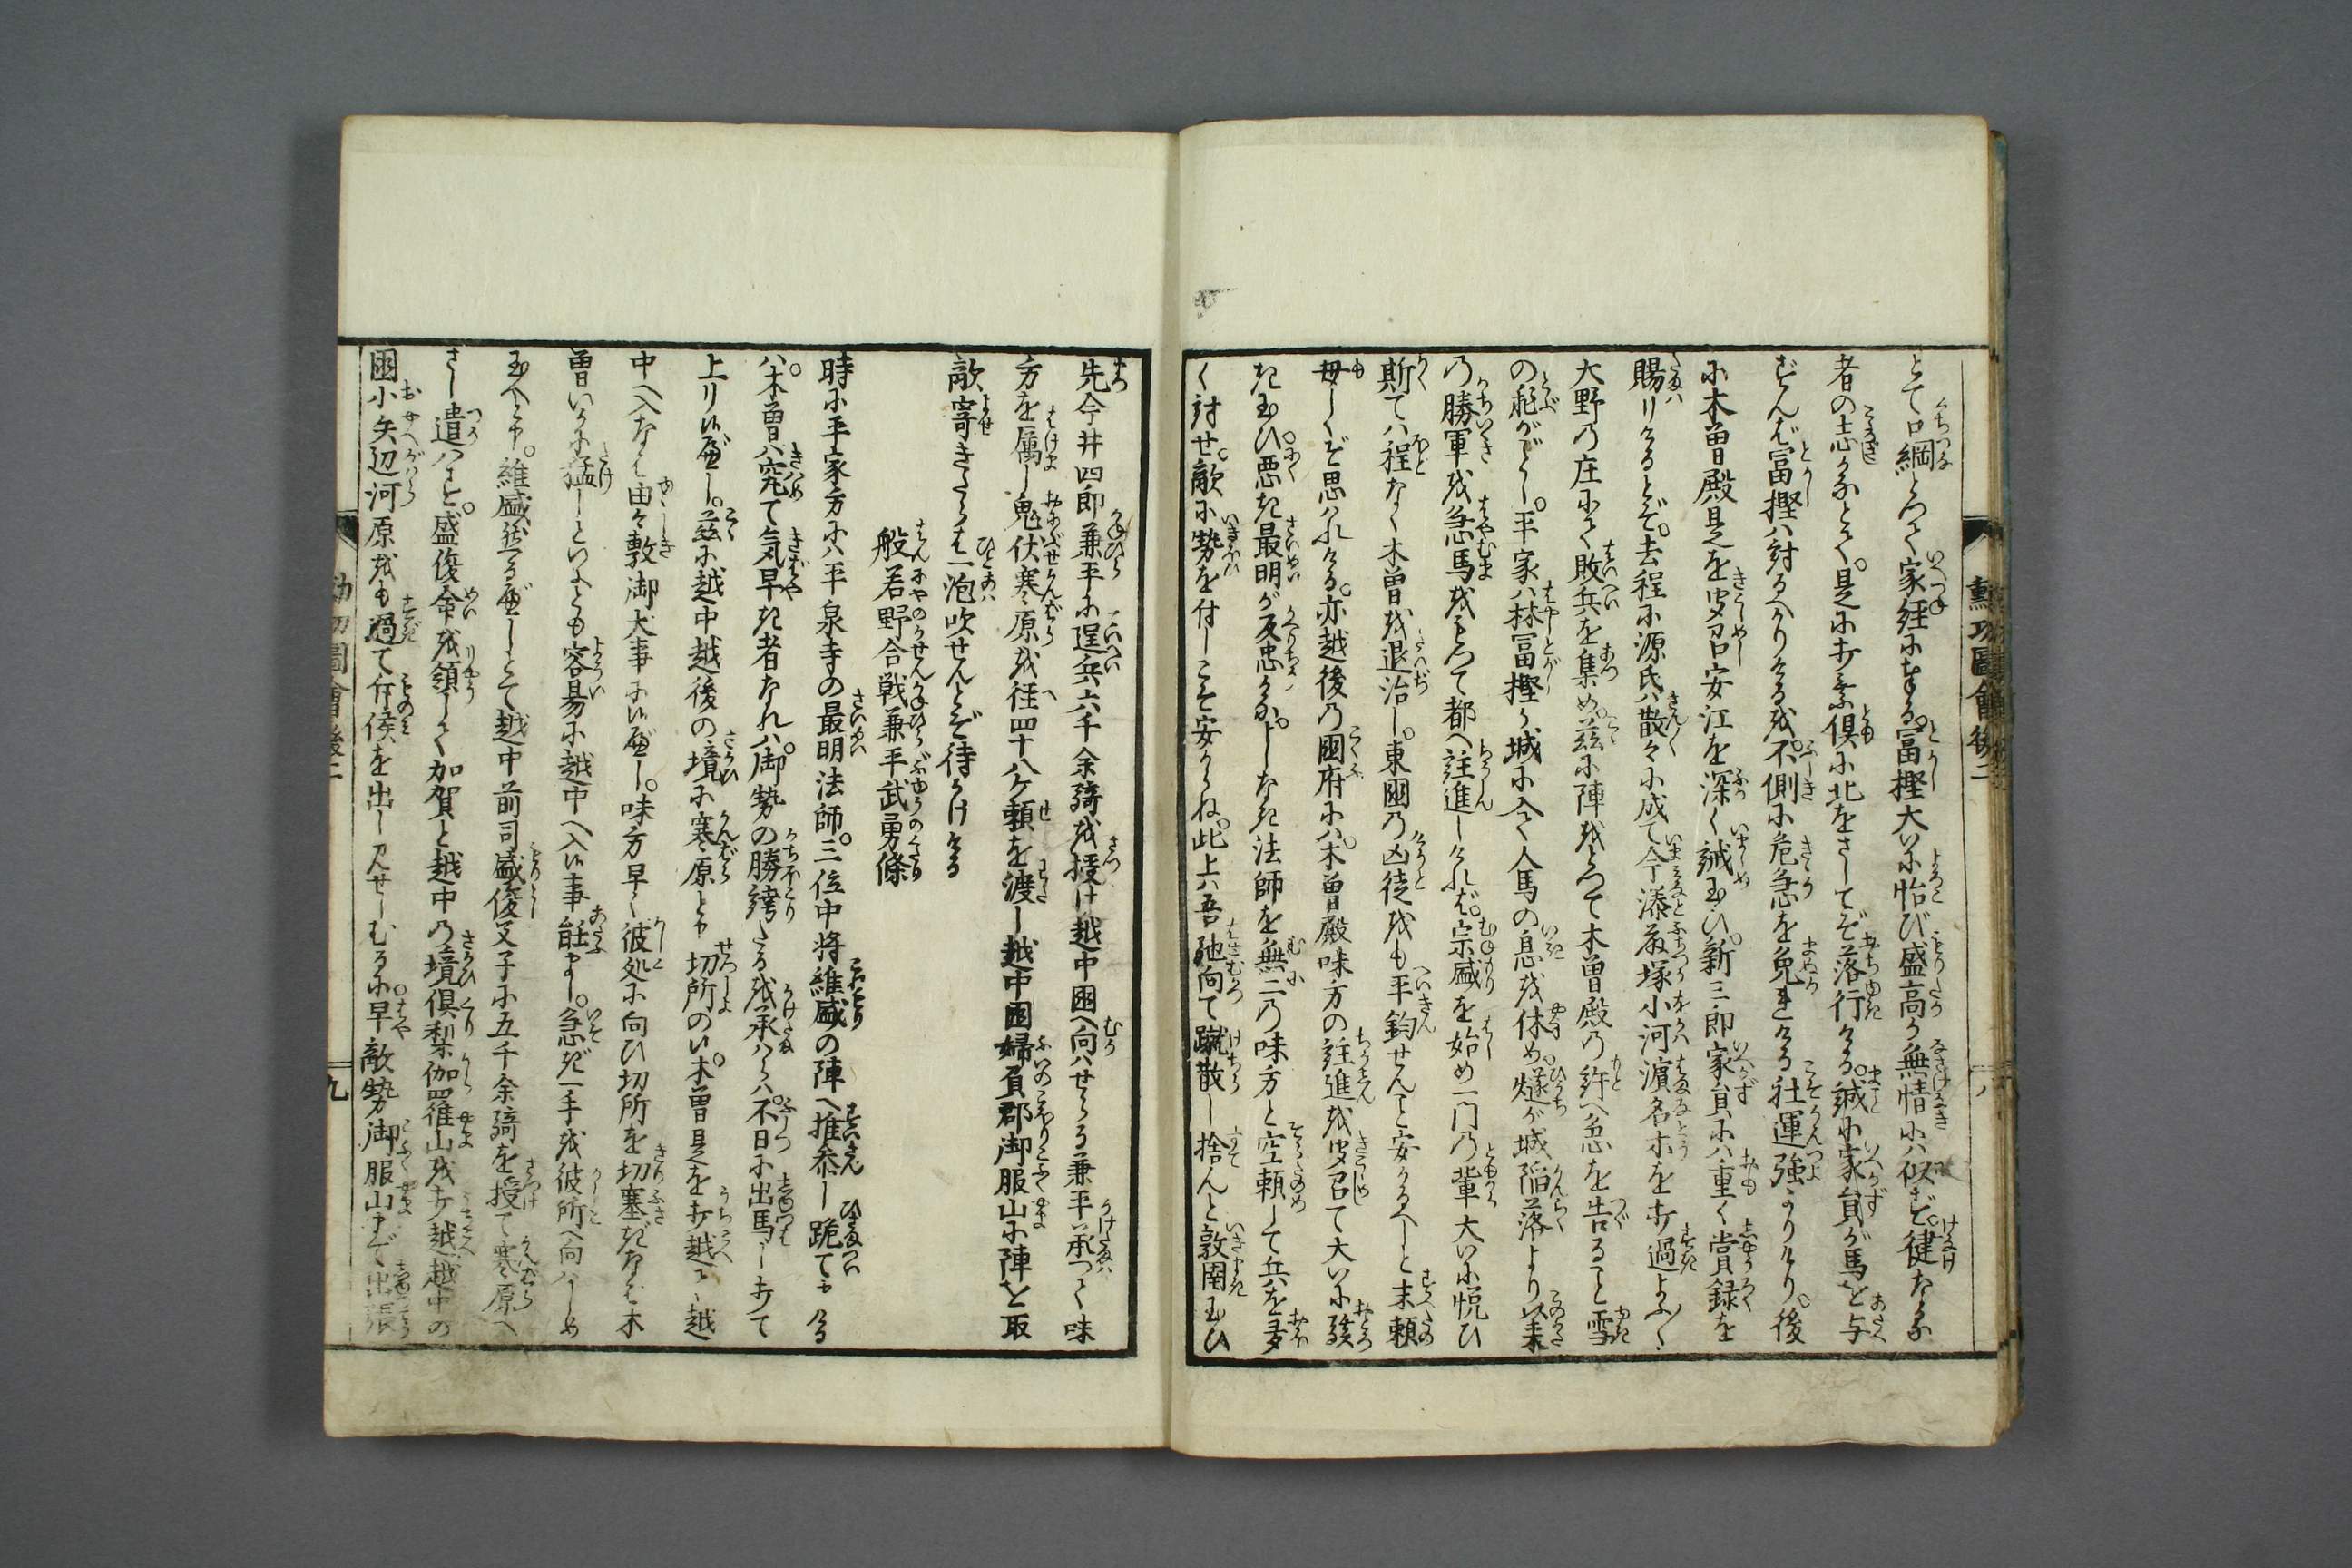 とて口綱とつて家経にまゐる冨樫大いに怡び盛高が無情には似ず健なる
者の志かなとて是に打乗倶に北をさしてぞ落行ける誠に家員が馬を与
ずんば冨樫は討るべかりけるを不側に危急を免れける社運強かりけり後
に木曽殿是を聞召安江を深く誡玉ひ新三郎家員には重く賞録を
賜りけるとぞ去程に源氏は散々に成て今湊藤塚小河濵名ホを打過
大野の庄にて敗兵を集め茲に陣をとつて木曽殿の許へ急を告ること雪
の飛がごとし平家は林冨樫が城に入て人馬の息を休め燧が城陥落より以来
の勝軍を急馬をもつて都へ註進しければ宗盛を始め一門の輩大いに悦ひ
斯ては程なく木曽を退治し東國の凶徒をも平鈞せんこと安かるべしと末頼
母しくぞ思はれける亦越後の國府には木曽殿味方の註進を聞召て大いに駭
き玉ひ悪き最明が反忠かなよしなき法師を無二の味方と空頼して兵を多
く討せ敵に勢を付しこそ安からね此上は吾馳向て蹴散し捨んと敦圉玉ひ
勲功圖會後二
八
先今井四郎兼平に逞兵六千余騎を授け越中國へ向はせらる兼平承つて味
方を属し鬼伏寒原を徃四十八ケ頼を渡し越中國婦負郡御服山に陣を取
敵寄きたらば一泡吹せんとぞ待かけける
般若野合戦兼平武勇條
時に平家方には平泉寺の最明法師三位中将維盛の陣へ推参し跪て申ける
は木曽は究て気早き者なれば御勢の勝誇たるを承はらば不日に出馬し打て
上り候べし茲に越中越後の境に寒原と申切所のい木曽是を打越て越
中へ入なば由々敷御大事に候べし味方早く彼処に向ひ切所を切塞ぎなば木
曽いかに猛しといふとも容易に越中へ入い事能まじ急ぎ一手を彼所へ向はしめ
玉へと申維盛然るべしとて越中前司盛俊父子に五千余騎を授て寒原へ
さし遣はす盛俊命を領して加賀と越中の境倶梨伽羅山を打越越中の
國小矢辺河原をも過て斥候を出し見せしむるに早敵勢御服山まで出張
九